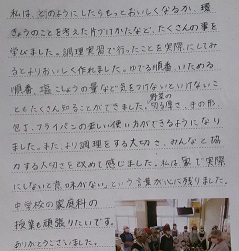 私は、どのようにしたらもっとおいしくなるか、環
きょうのことを考えた片づけかたなど、たくさんの事を
学びました。調理実習で行ったことを実際にしてみ
るとよりおいしく作れました。ゆでる順番、いためる
順番、塩こしょうの量など気をつけないといけないこ
とをたくさん知ることができました。野菜の切る厚さ、手の形、
包丁、フライパンの正しい使い方ができるようになり
ました。また、より調理をする大切さ、みんなと協
力する大切さを改めて感じました。私は家で実際
にしないと意味がない。という言葉が心に残りました。
中学校の家庭科の
授業も頑張りたいです。
ありがとうございました。